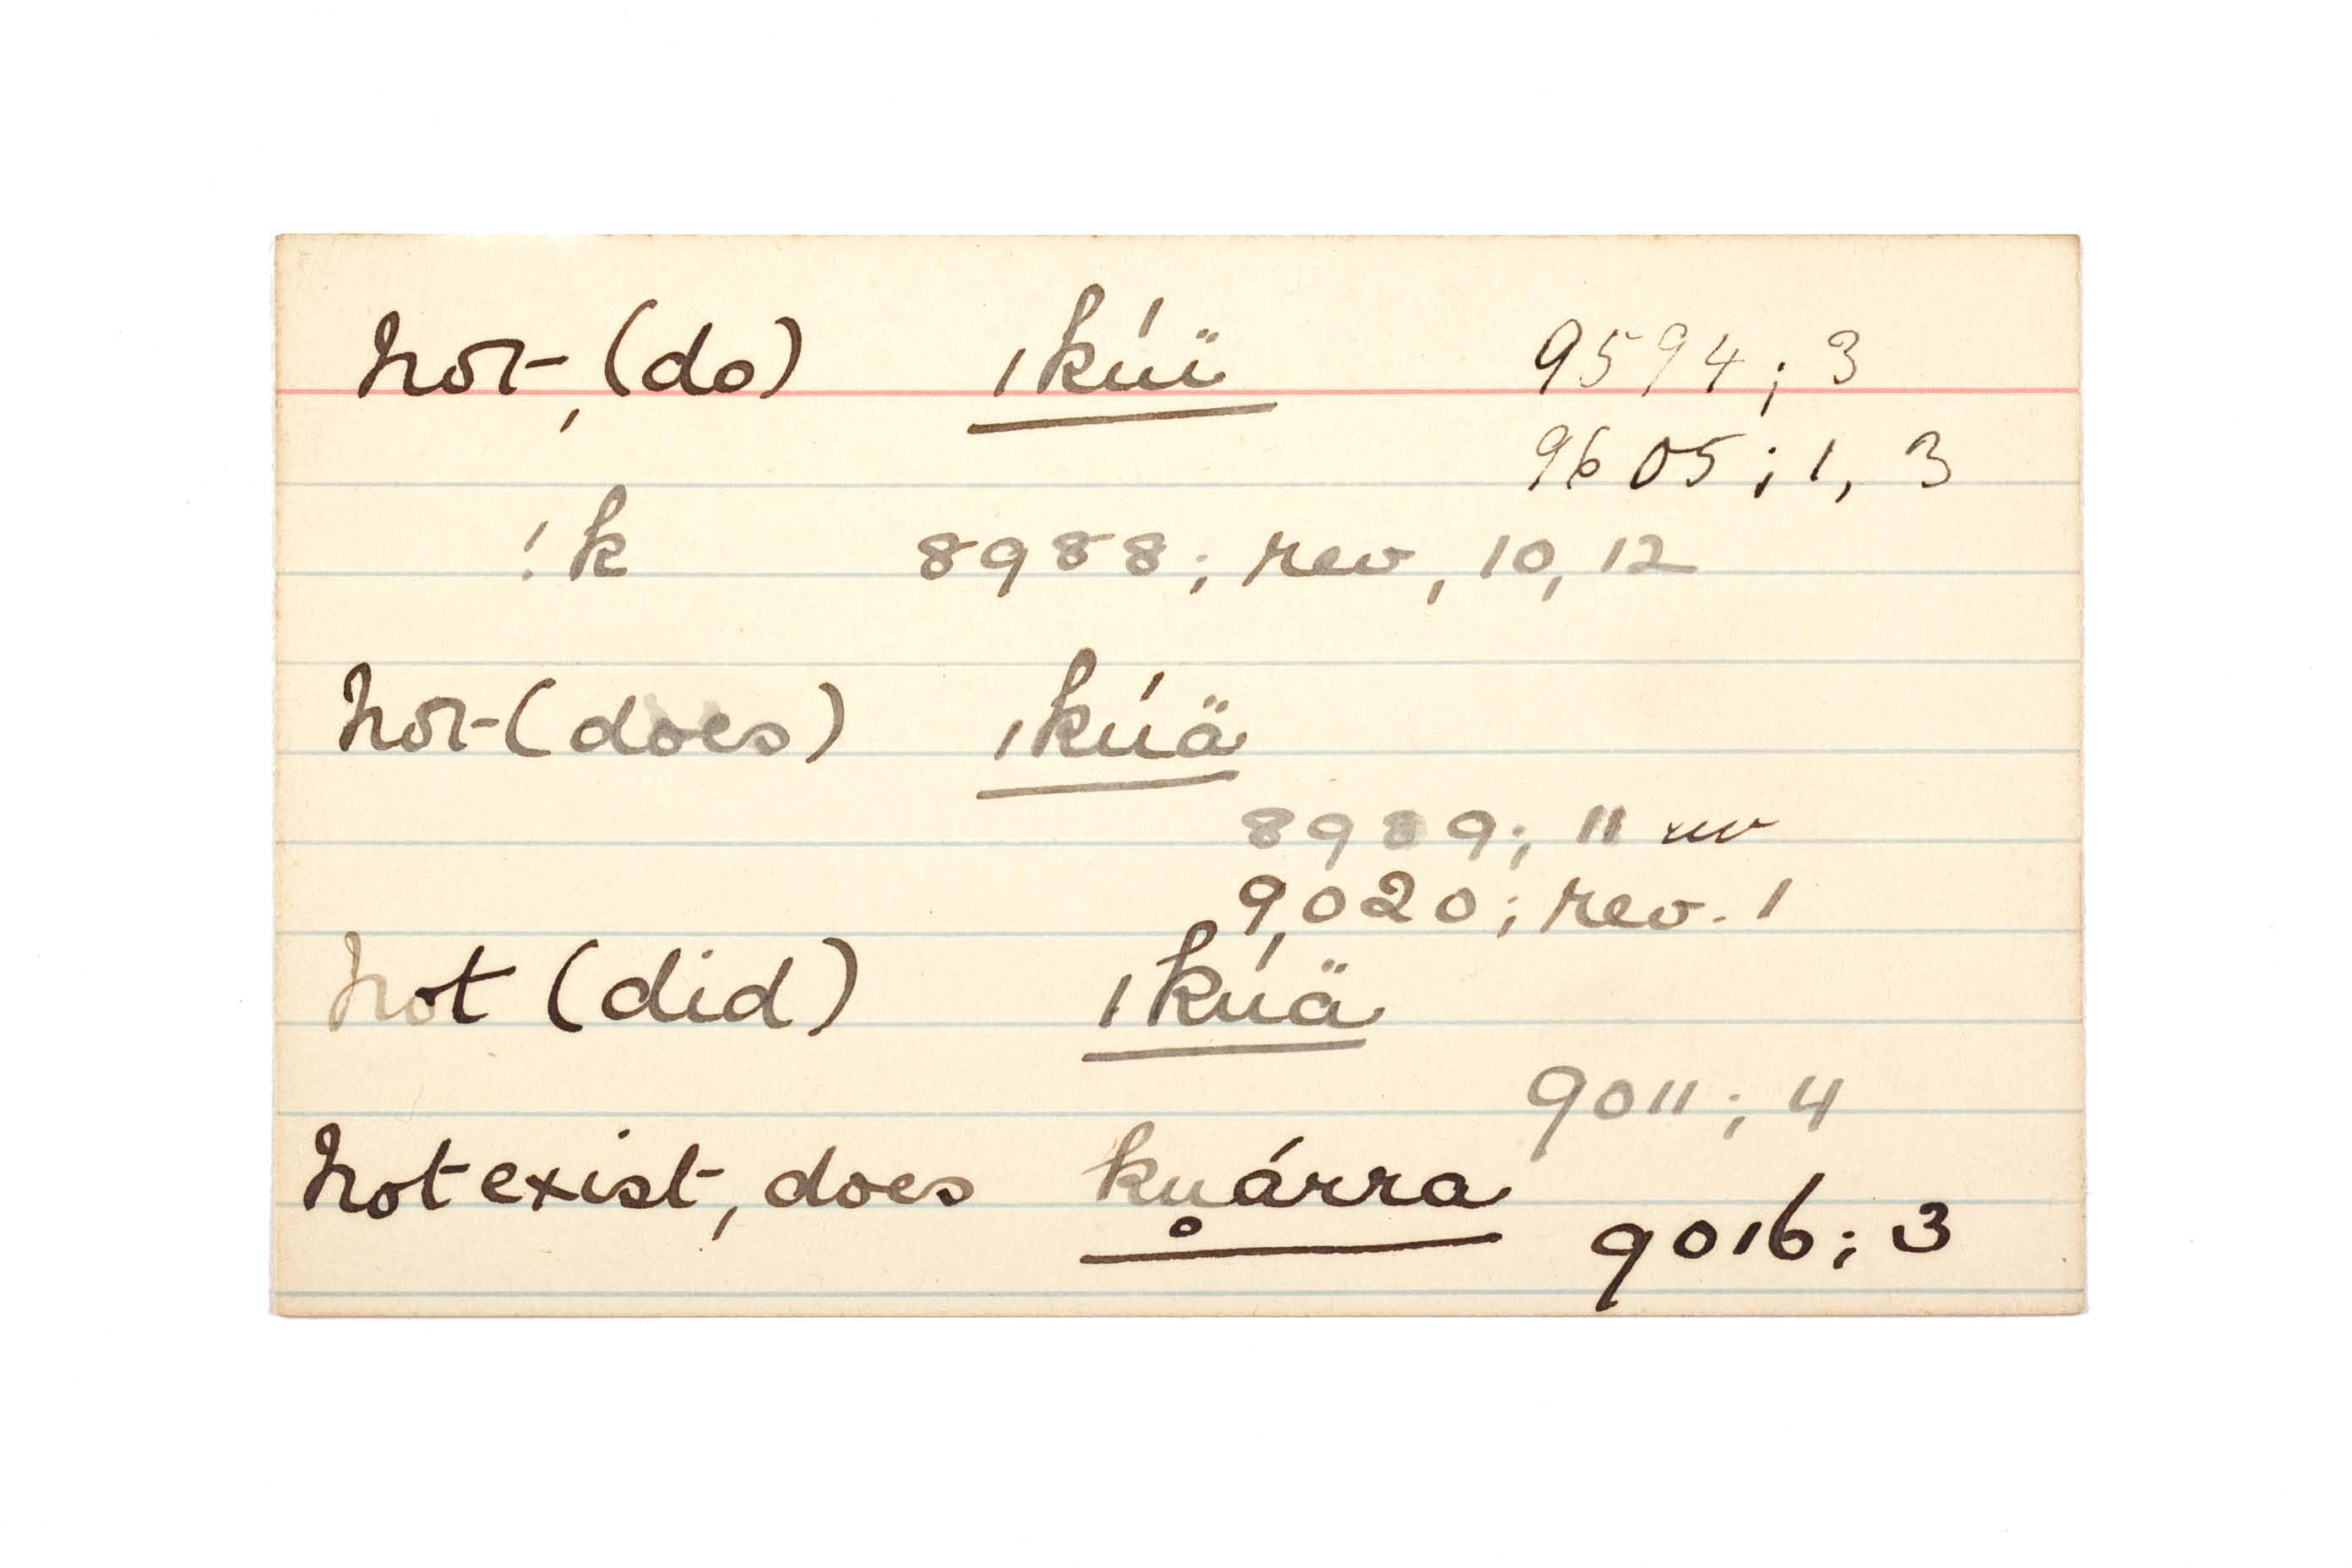 not, (do) ıkúï 9594; 3
9605; 1, 3
!k 8988; rev, 10, 12
not (does) ıkúä
8989; 11 rev
9,020; rev. 1
not (did) ıkúä
9011; 4
not exist, does ku̥árra
9016; 3